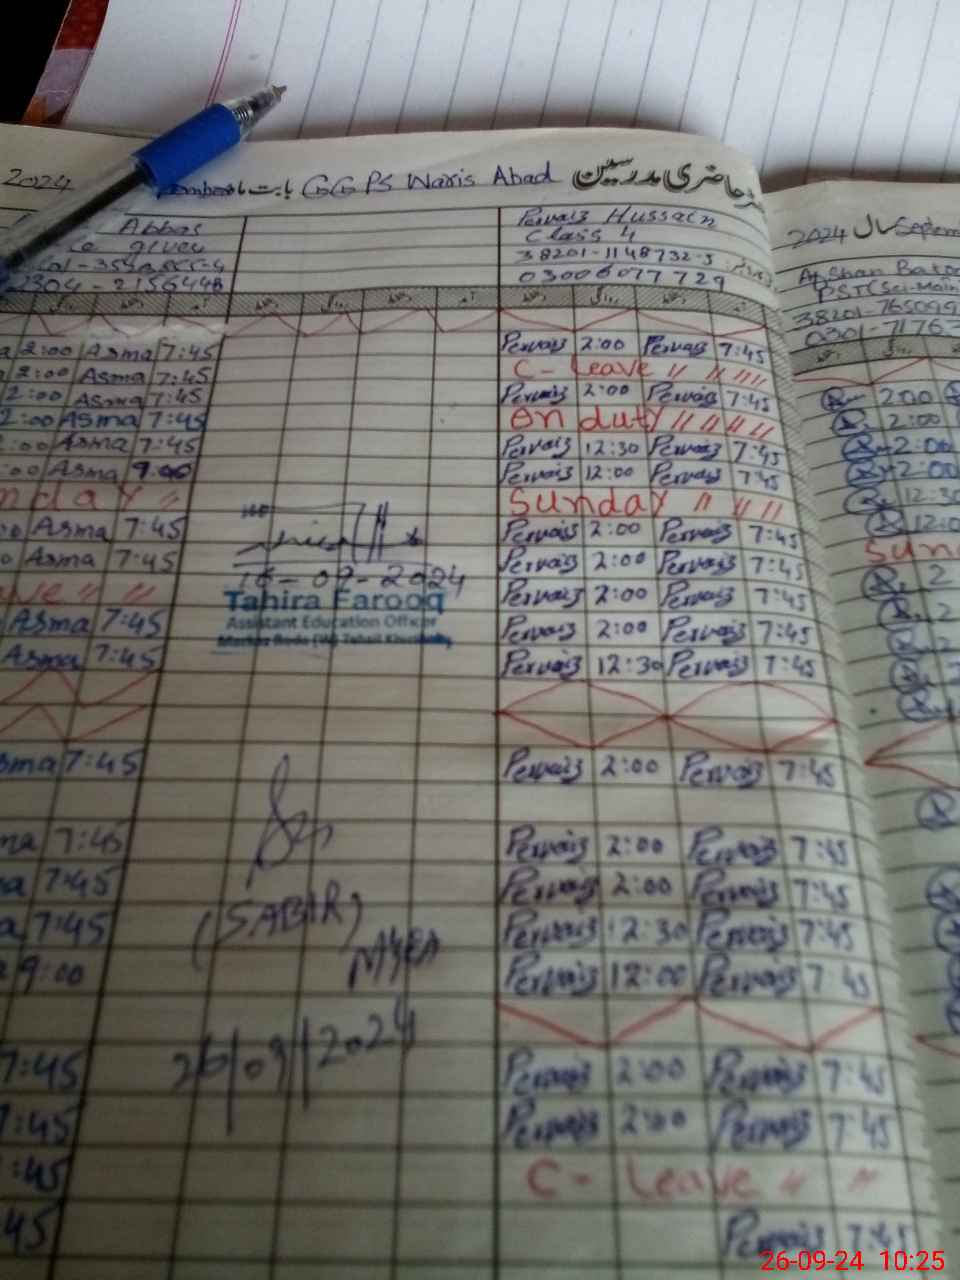 2024 بابت ماہ GGPS Waris Abad رجسٹر حاضری مدرسین
Abbas
Pervaiz Hussain
Class 4
38201-1148732-5
03006077729
2024 سال Septem
Afshan Bato
PST (Sci-Main
38201-765099
0301-7176
2:00 Asma 7:45 Pervaiz 2:00 Pervaiz 7:45
2:00 Asma 7:45 C- Leave " " " " 2:00
2:00 Asma 7:45 Pervaiz 2:00 Pervaiz 7:45 2:00
2:00 Asma 7:45 On duty " " " " 2:00
:00 Asma 7:45 Pervaiz 12:30 Pervaiz 7:45 2:00
:00 Asma 9:00 Pervaiz 12:00 Pervaiz 7:45 12:30
nday " Sunday " " " " 12:0
Asma 7:45 Pervaiz 2:00 Pervaiz 7:45 Sun
Asma 7:45 Pervaiz 2:00 Pervaiz 7:45 2
ave " " Pervaiz 2:00 Pervaiz 7:45 2
Asma 7:45 Pervaiz 2:00 Pervaiz 7:45 2
Asma 7:45 Pervaiz 12:30 Pervaiz 7:45
16-09-2024
Tahira Farooq
Assistant Education Officer
sma 7:45 Pervaiz 2:00 Pervaiz 7:45
ma 7:45 Pervaiz 2:00 Pervaiz 7:45
a 7:45 Pervaiz 2:00 Pervaiz 7:45
a 7:45 Pervaiz 12:30 Pervaiz 7:45
9:00 Pervaiz 12:00 Pervaiz 7:45
(SABIR)
MYEA
26/09/2024
7:45 Pervaiz 2:00 Pervaiz 7:45
7:45 Pervaiz 2:00 Pervaiz 7:45
:45 C- Leave " "
45 Pervaiz 7:45
26-09-24 10:25